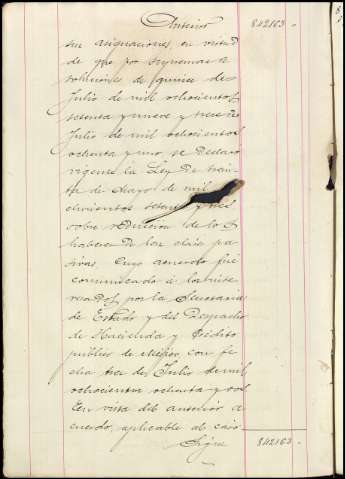 Anterior 842163
sus asignaciones, en virtud
de que por supremas re
soluciones de quince de
Julio de mil ochocientos
setenta y nueve y trece de
Julio de mil ochocientos
ochenta y uno se declaró
vigente la Ley de trein
ta de Mayo de mil
chocientos setenta y tres
sobre reducion de los
haberes de las clases pa
sivas. Cuyo acuerdo fué
comunicado á los inte
resados por la Secretaria
de Estado y del Despacho
de Hacienda y Crédito
público de Mejico, con fe
cha trece de Julio de mil
ochocientos ochenta y dos
En vista del anterior a
cuerdo, aplicable al caso
Sigue 842163